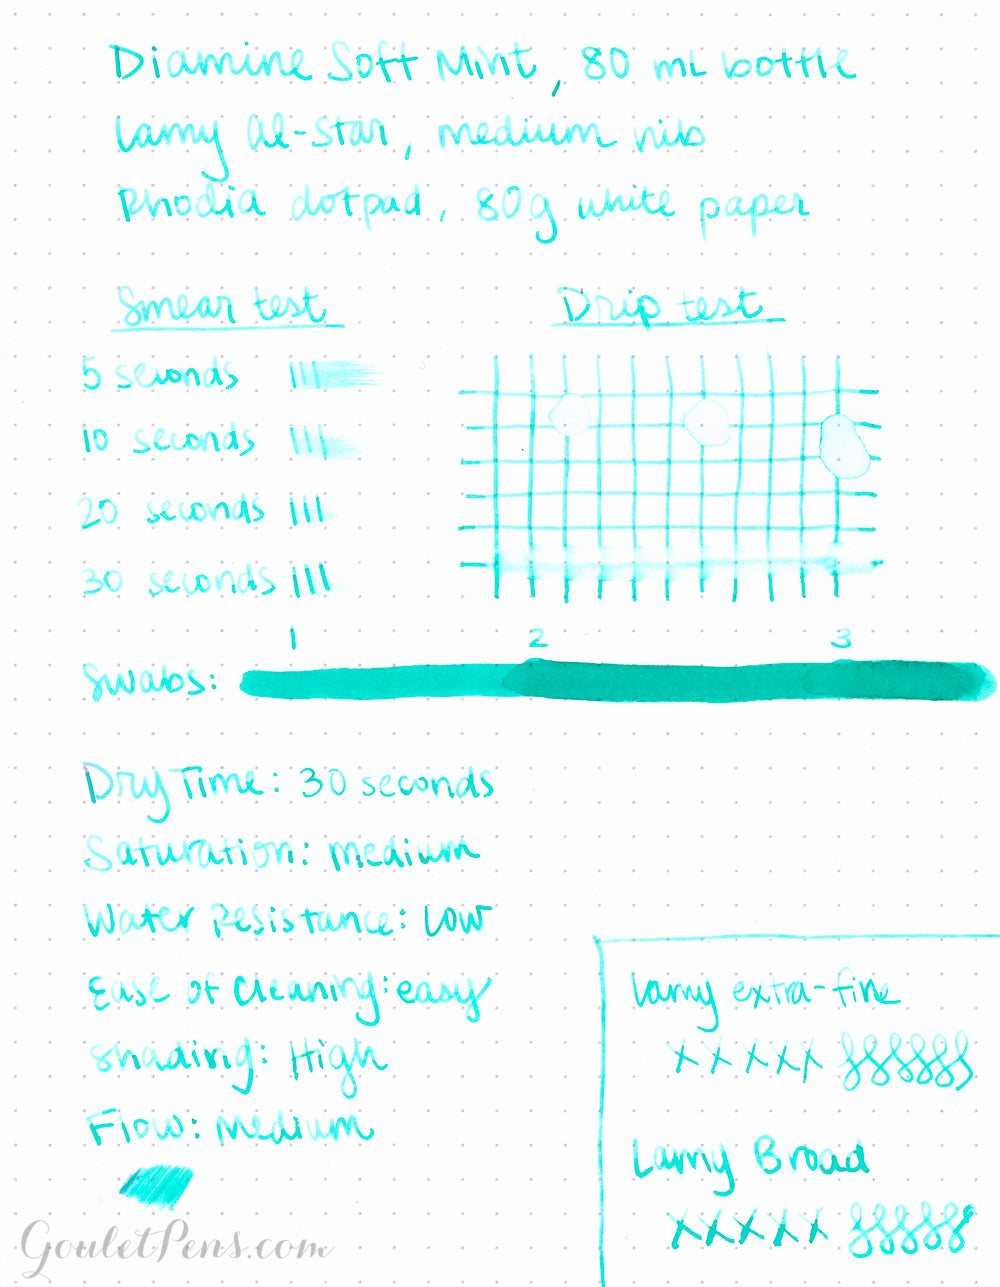 Diamine Soft Mint, 80 mL bottle
Lamy Al-Star, medium nib
Rhodia dotpad, 80g white paper
Smear test
Drip test
5 seconds
10 seconds
20 seconds
30 seconds
1 2 3
Swabs:
Dry Time: 30 seconds
Saturation: Medium
Water Resistance: Low
Ease of Cleaning: easy
Shading: High
Flow: Medium
Lamy extra-fine
x x x x x
Lamy Broad
x x x x x
GouletPens.com